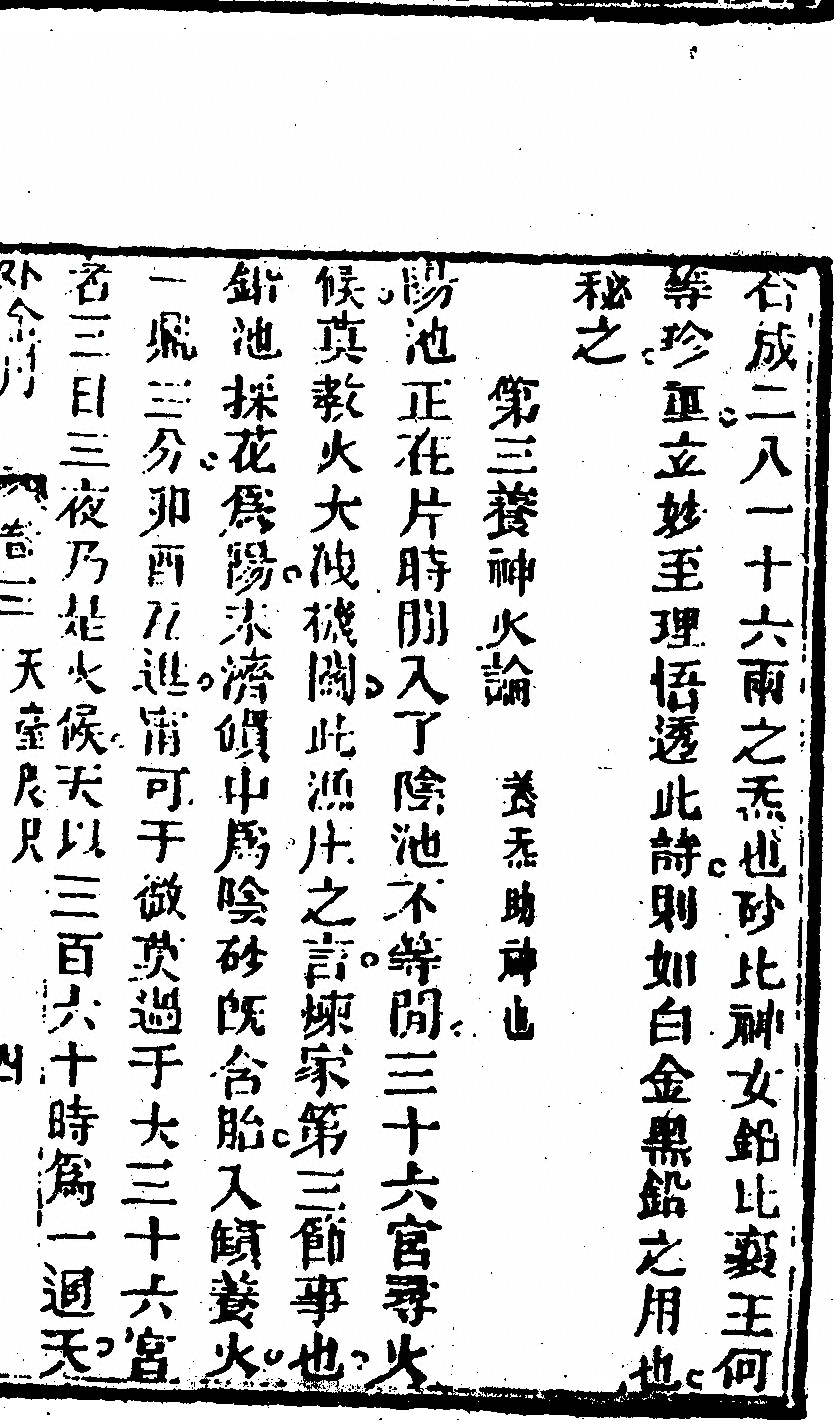 合成二八一十六兩之炁也砂比神女鉛比襄王何
等珍重立妙至理悟透此詩則如白金黑鉛之用也
秘之
第三養神火論 養炁助神也
陽池正在片時間入了陰池不等閒三十六宮尋火
候莫教火大洩機關此漁庄之言煉家第三節事也
鉛池採花爲陽未濟鼎中爲陰砂旣含胎入鼎養火
一飛三分卯酉互進甯可于微莫過于大三十六宮
者三日三夜乃是火候天以三百六十時爲一週天
外金丹 卷三 天臺 四